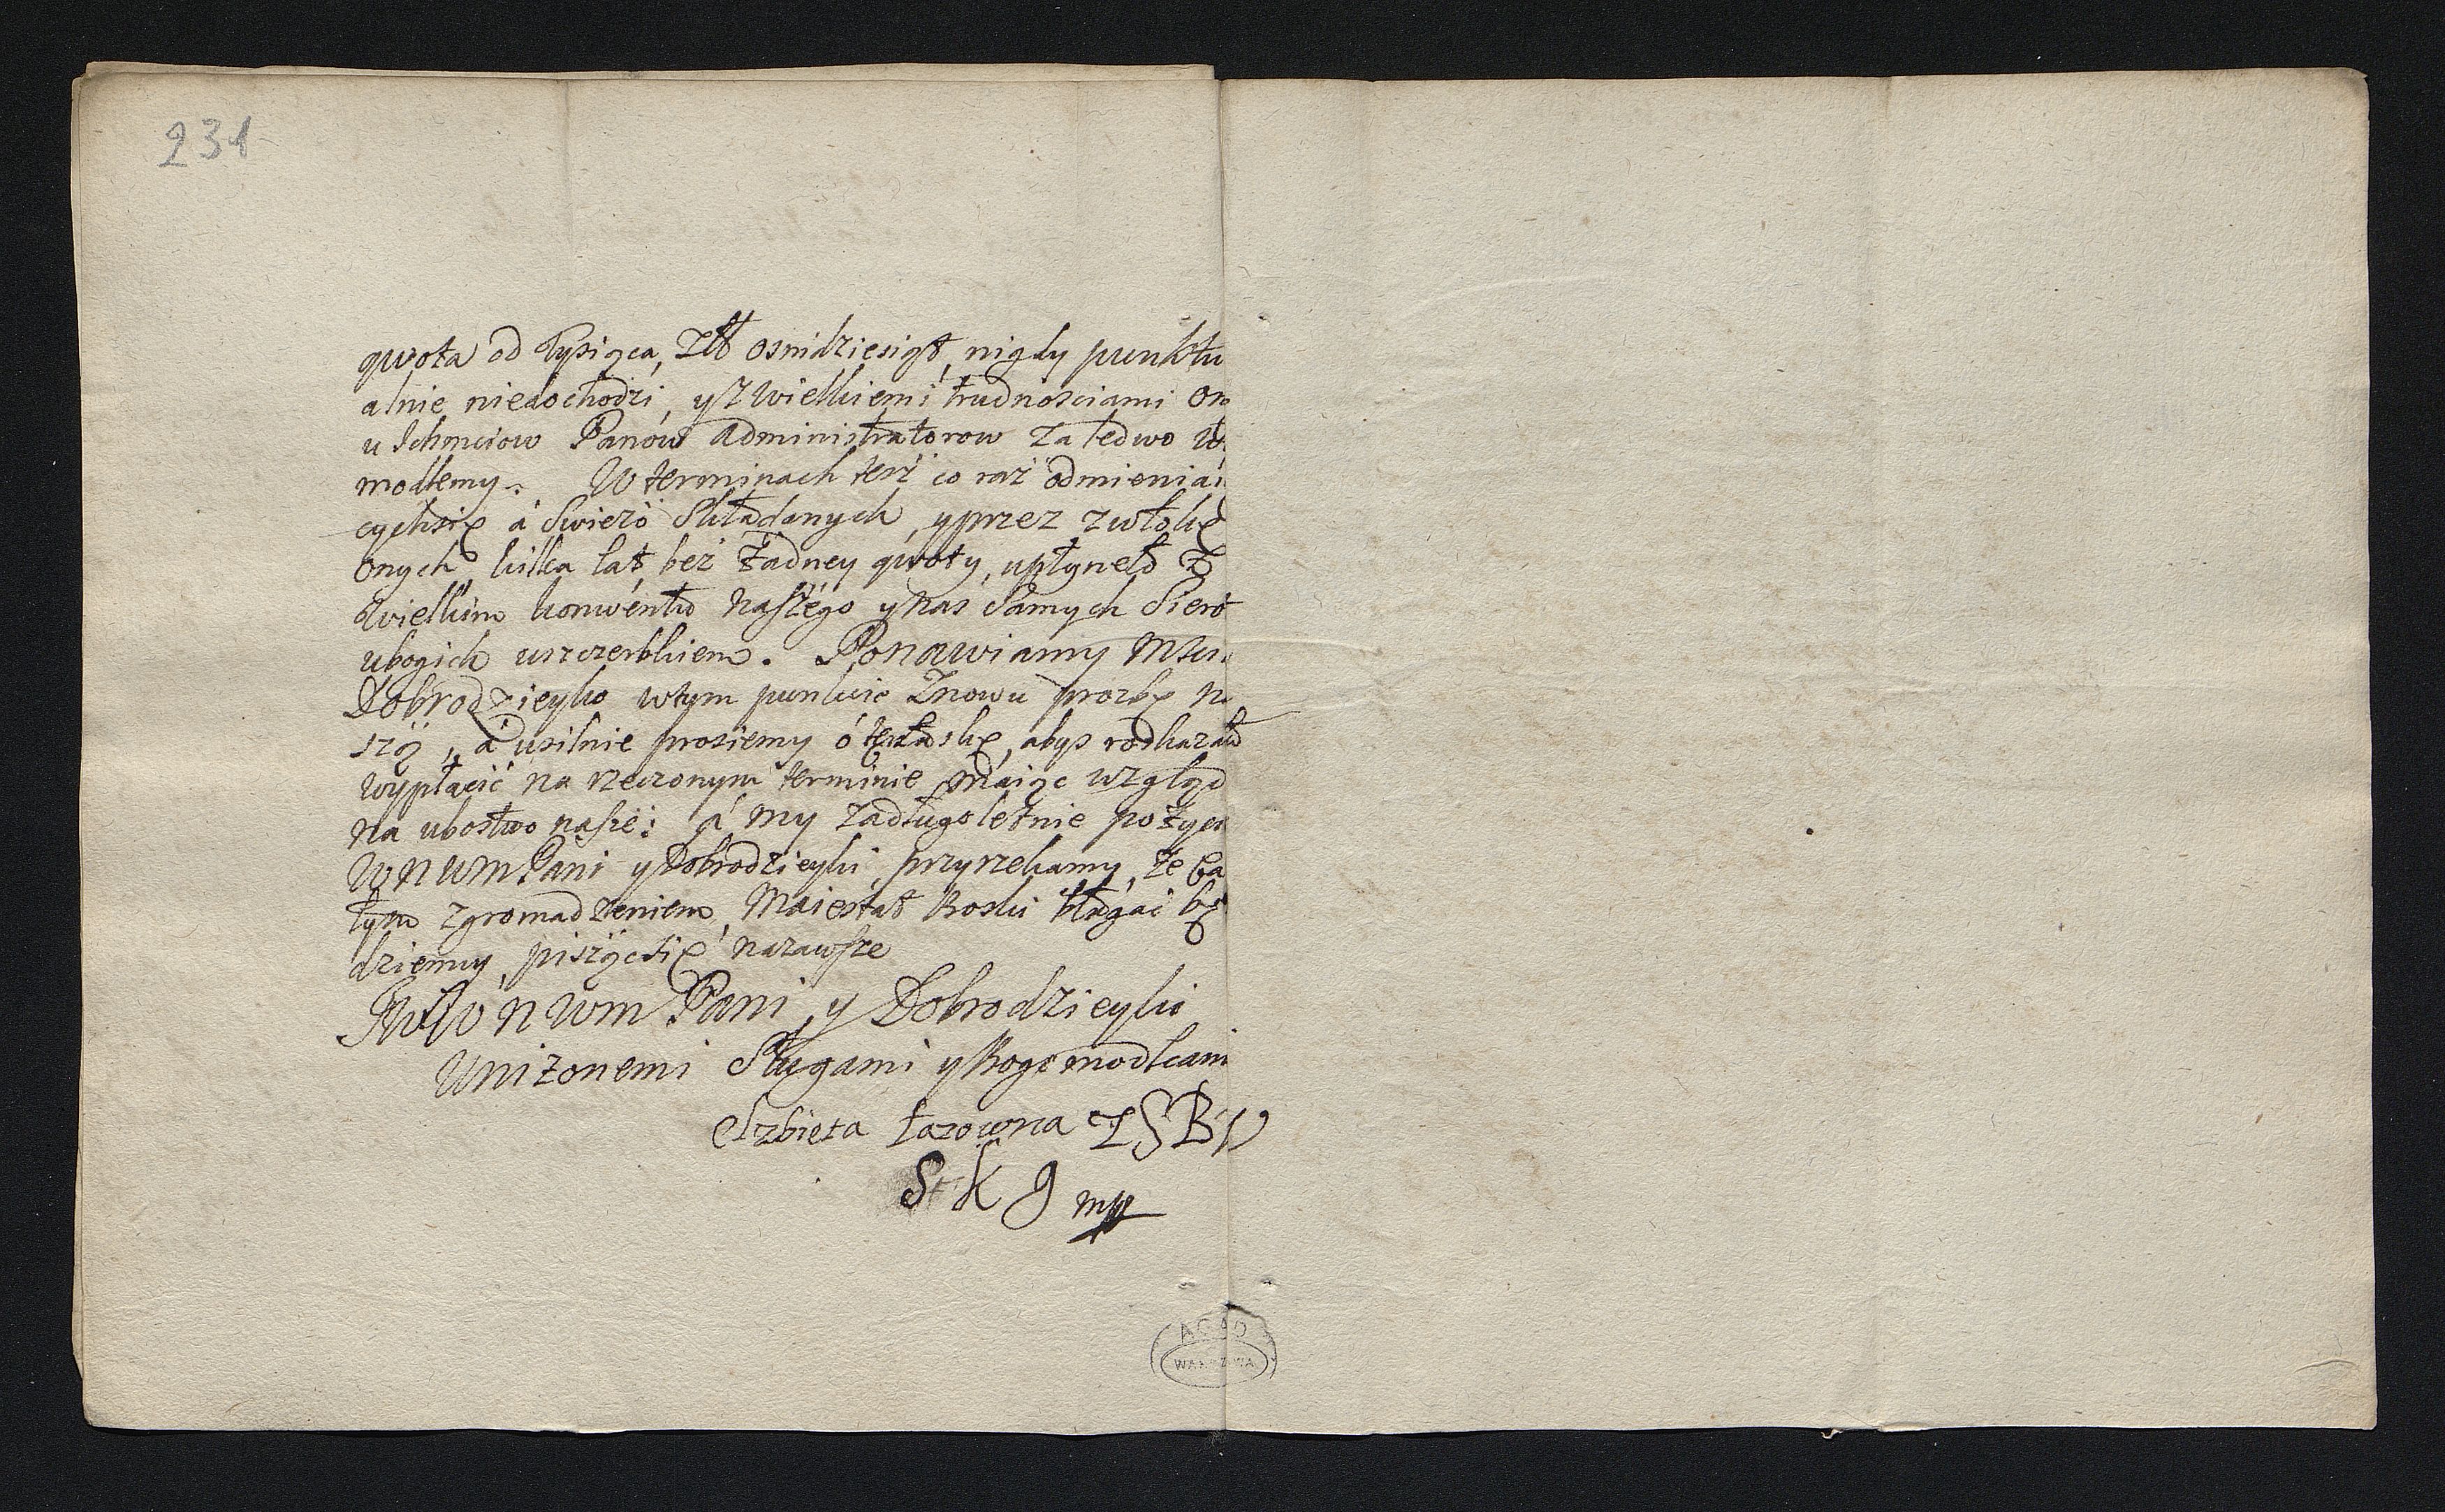 231
qwota od Tysiąca, Złł osmdziesiąt, nigdy punktu
alnie niedochodzi, y z wielkiemi trudnosciami
u Ichmciow Panów Administratorow za ledwo
modlemy. W terminach tesz co raz odmieniai
cychsię á swiezo składanych, y przez zwłokę
onych kilka lat bez żadney qwoty, upłyneło z
wielkim konwentu naszego y nas samych Sierot
ubogich uszczerbkiem. Ponawiamy
Dobrodzieyko w tym punkcie znowu prozbę na
szą, á usilnie prosiemy ó tę łaskę, abys rozkazała
wypłacić na rzeczonym terminie maiąc wzgląd
na ubostwo nasze: á my za długoletnie pożycie
W N WM Pani y Dobrodzieyki, przyrzekamy, że ca
łym zgromadzeniem, Maiestat Boski błagać bę
dziemy, pisząc się nazawsze
JW W N WM Pani y Dobrodzieyki
Unizonemi Sługami y Bogomodlcami
Elzbieta Łazowna Z S B
S K G mpp
AGAD
WARSZAWA